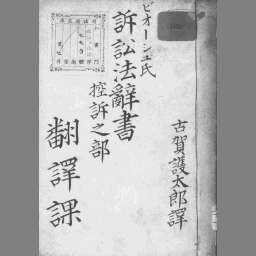 ビオーシュ氏
訴訟法辭書
控訴之部
古賀護太郎譯
飜譯課